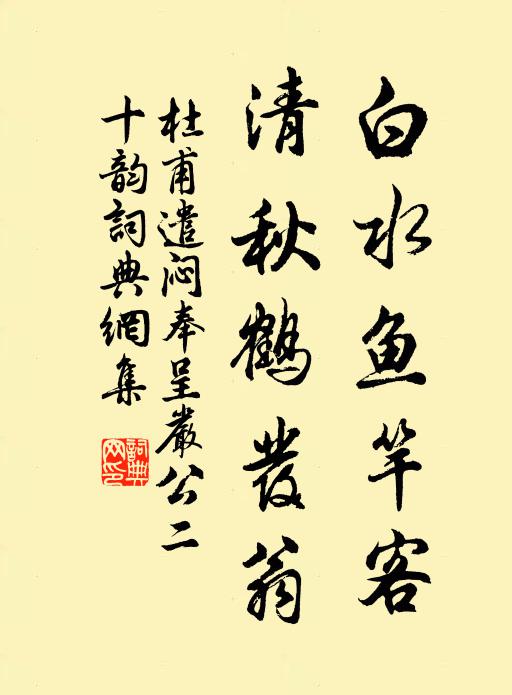 白水鱼竿客
清秋鹤發翁
杜甫遣闷奉呈嚴公二
十韵詞典網集
詞典
网印